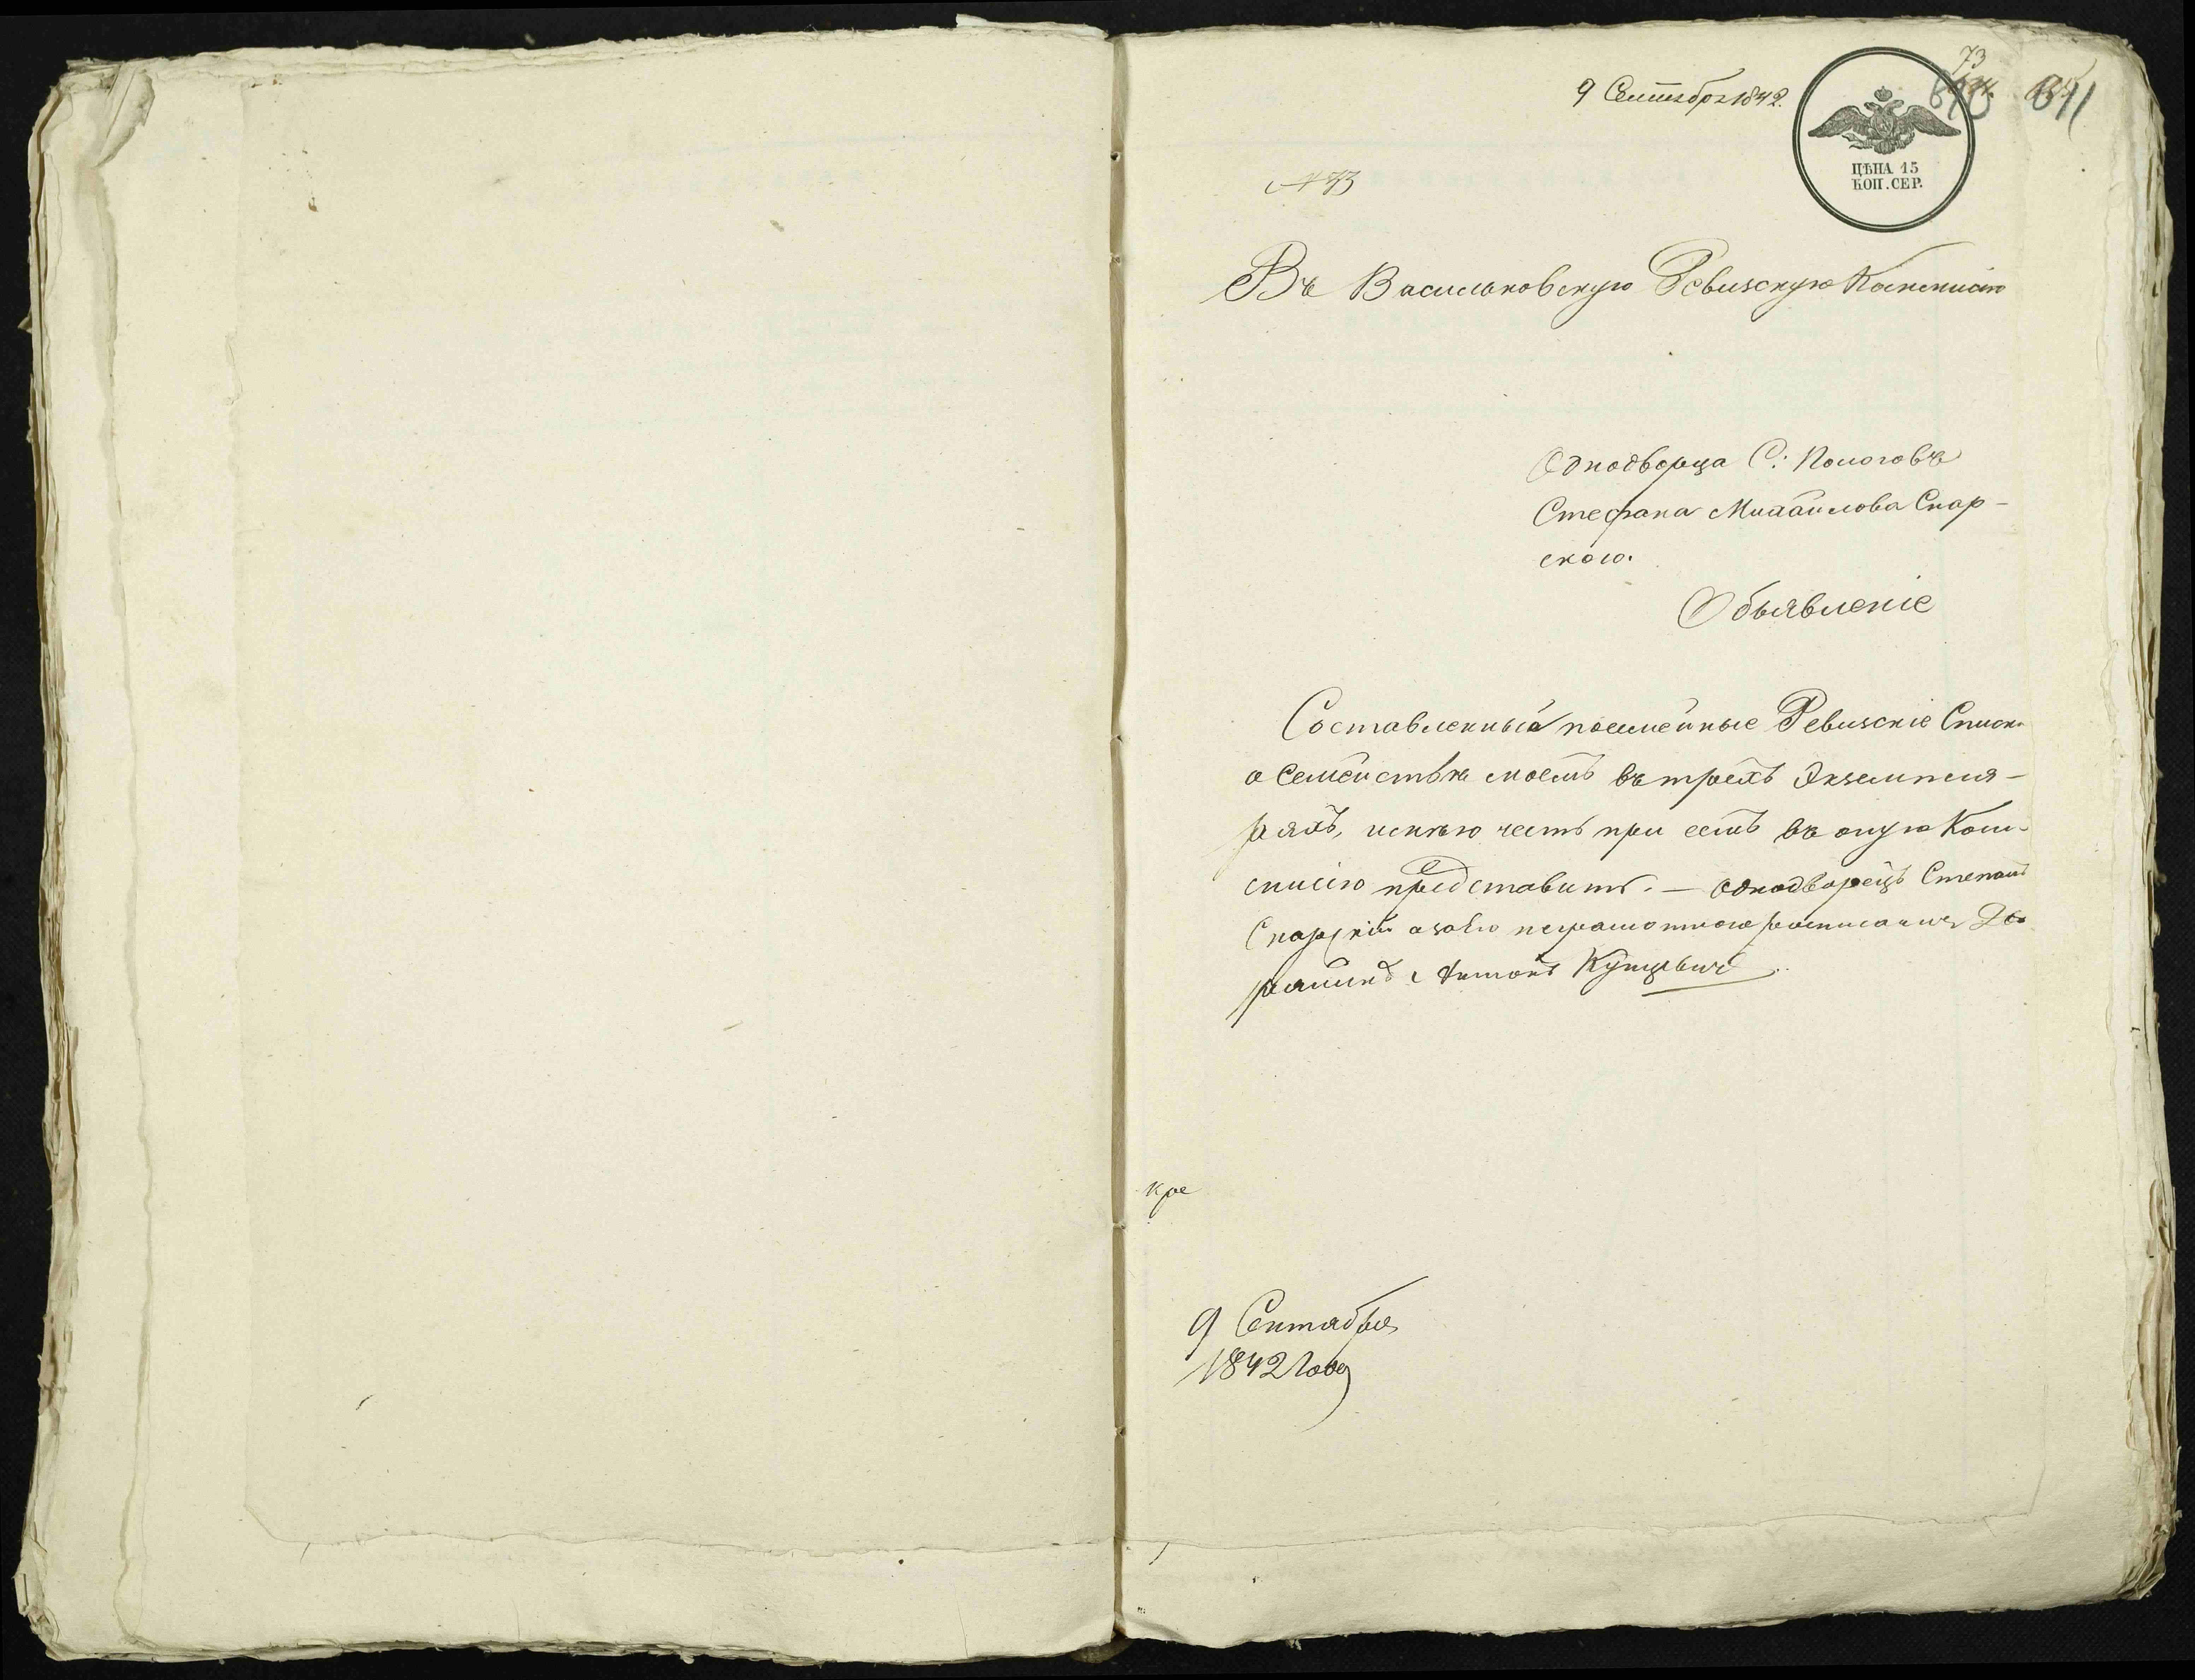 9 Сентября 1842.
73
641
ЦѢНА 15
КОП. СЕР.
№ 73
Въ Васильковскую Ревизскую Коммисію
Однодворца С: Пологовъ
Стефана Михайлова Скар-
ского.
Объявленіе
Составленные посемейные Ревизскіе Списки
о Семействѣ моемъ въ трехъ Экземпля-
ряхъ, имѣю честь при семъ въ оную Ком-
мисію представить. — Однодворецъ Степанъ
Скарскій а за его неграмотного росписался Дво-
рянинъ Антонъ Купцевич
кре
9 Сентября
1842 года